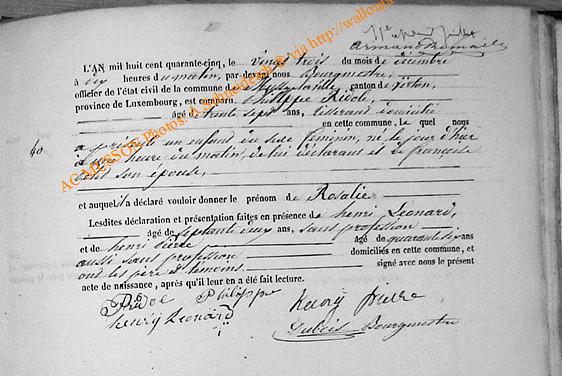 Armand Romail
L'AN mil huit cent quarante-cinq, le Vingt trois du mois de décembre
à dix heures du matin, par devant nous Bourgmestre,
officier de l'état civil de la commune de Mussy-la-ville, canton de
province de Luxembourg, est comparu Philippe Ridole,
âgé de trente sept ans, domicilié
en cette commune, Le quel nous
40
a présenté un enfant du sexe féminin, né le jour d'hier
à une heure du matin, de lui déclarant et de françoise
son épouse,
et auquel il a déclaré vouloir donner le prénom de Rosalie
Lesdites déclaration et présentation faites en présence de henri Leonard,
âgé de septante ans, sans profession
et de henri pierre âgé de quarante six ans
aussi sans profession domiciliés en cette commune, et
ont les père et témoins signé avec nous le présent
acte de naissance, après qu'il leur en a été fait lecture.
Ridole Philippe henry pierre
henry Leonard Dubois Bourgmestre
ACADESSON Photos: A Schneidesch @ via http://wallonia